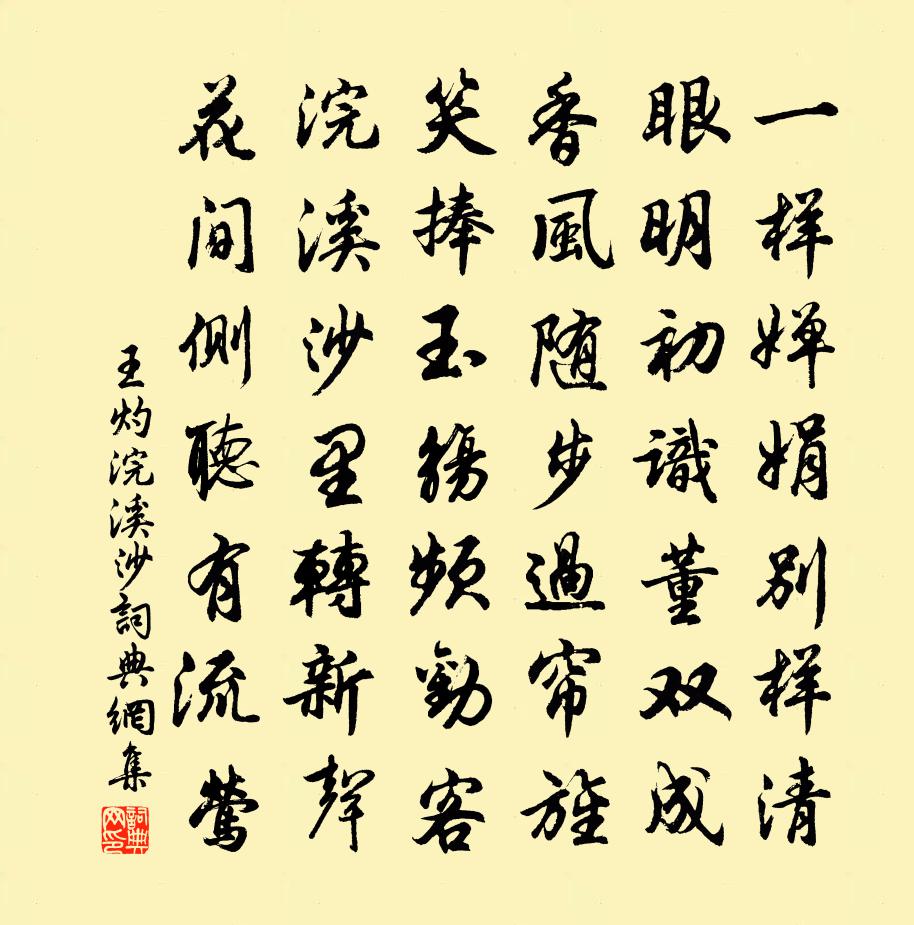 一样婵娟别样清
眼明初識董双成
香風随步過帘旌
笑捧玉觞频勸客
浣溪沙里轉新聲
花间側聽有流莺
王灼浣溪沙詞典網集
詞典网印